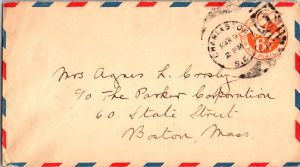 CHARLESTON
2 PM
S.C.
6¢
Mrs Agnes L. Crosby
% The Parker Corporation
60 State Street
Boston, Mass.